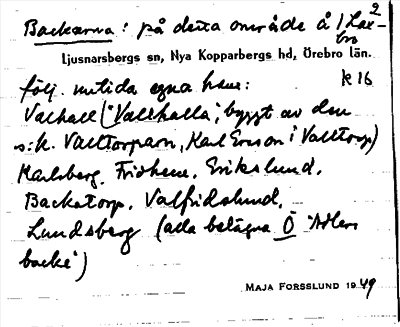 Backarna: på detta område å 1 Lax-2
bro
Ljusnarsbergs sn, Nya Kopparbergs hd, Örebro län.
följ. nutida egna hem: k 16
Valhall ("Vallhalla", byggt av den
s:k. Valltorparn, Karl Ersson i Valltorp)
Karlsberg, Fridhem, Erikslund,
Backatorp, Valfridslund,
Lundsberg (alla belägna Ö "Adlers
backe")
MAJA FORSSLUND 1949